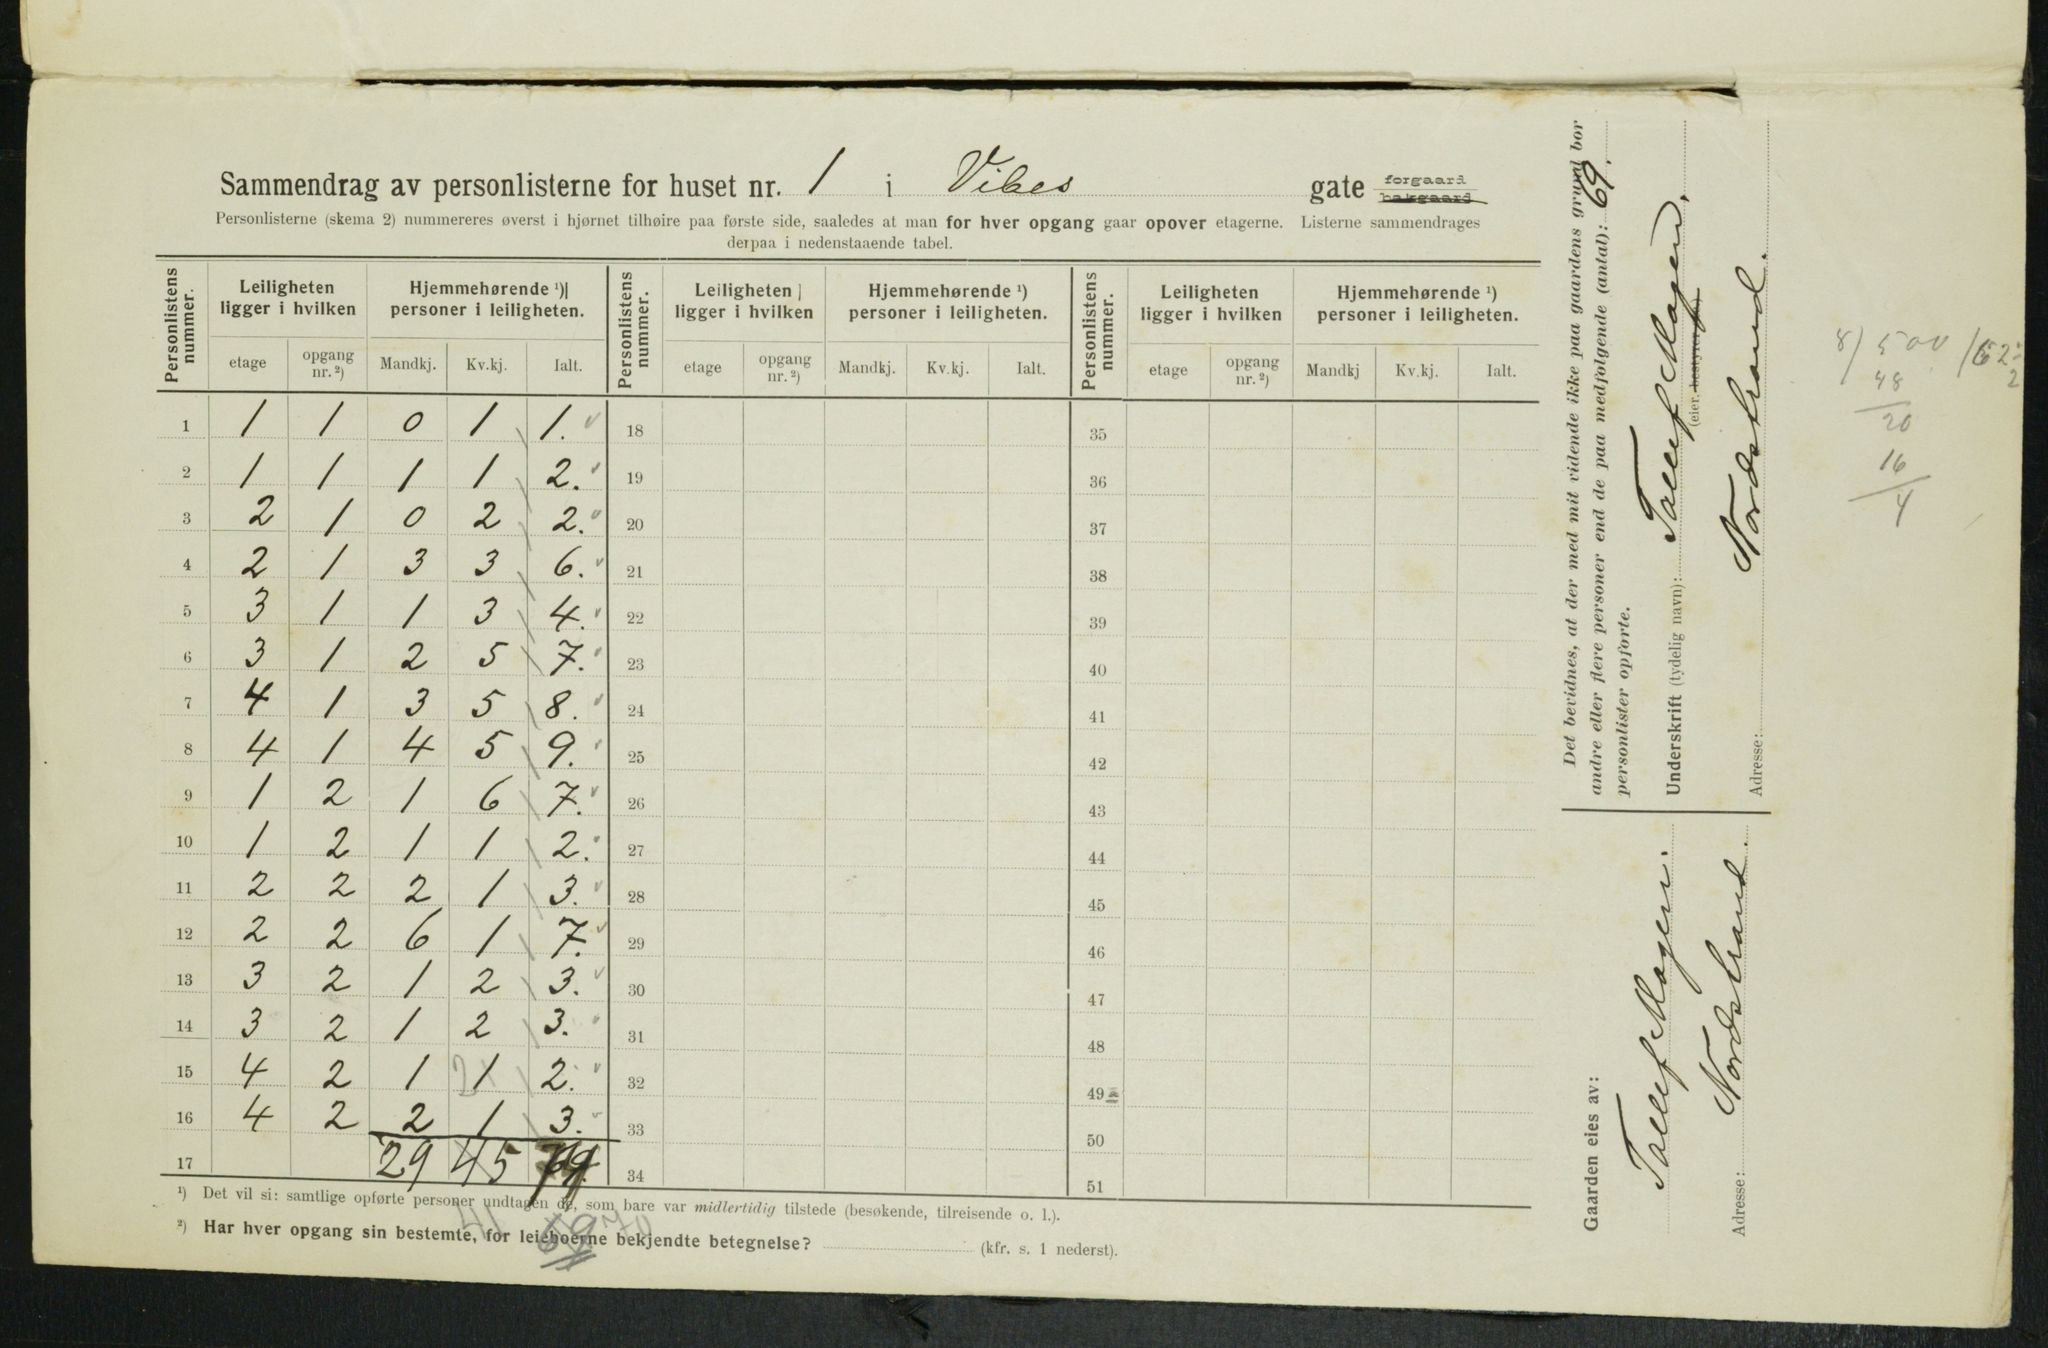 Sammendrag av personlisterne for huset nr. 1 i Vibes gate forgaard bakgaard
Personlisterne (skema 2) nummereres øverst i hjørnet tilhøire paa første side, saaledes at man for hver opgang gaar opover etagerne. Listerne sammendrages
derpaa i nedenstaaende tabel.
Personlistens nummer. Leiligheten ligger i hvilken Hjemmehørende ¹) personer i leiligheten. Personlistens nummer. Leiligheten ligger i hvilken Hjemmehørende ¹) personer i leiligheten. Personlistens nummer. Leiligheten ligger i hvilken Hjemmehørende ¹) personer i leiligheten.
etage opgang nr. ²) Mandkj. Kv.kj. Ialt. etage opgang nr. ²) Mandkj. Kv.kj. Ialt. etage opgang nr. ²) Mandkj Kv.kj. Ialt.
1 1 1 0 1 1. 18 35
2 1 1 1 1 2. 19 36
3 2 1 0 2 2. 20 37
4 2 1 3 3 6. 21 38
5 3 1 1 3 4. 22 39
6 3 1 2 5 7. 23 40
7 4 1 3 5 8. 24 41
8 4 1 4 5 9. 25 42
9 1 2 1 6 7. 26 43
10 1 2 1 1 2. 27 44
11 2 2 2 1 3. 28 45
12 2 2 6 1 7. 29 46
13 3 2 1 2 3. 30 47
14 3 2 1 2 3. 31 48
15 4 2 1 1 2. 32 49
16 4 2 2 1 3. 33 50
17 29 45 69. 34 51
¹) Det vil si: samtlige opførte personer undtagen de, som bare var midlertidig tilstede (besøkende, tilreisende o. l.).
41 69 70
²) Har hver opgang sin bestemte, for leieboerne bekjendte betegnelse? (kfr. s. 1 nederst).
Det bevidnes, at der med mit vidende ikke paa gaardens grund bor
andre eller flere personer end de paa medfølgende (antal): 69.
personlister opførte.
Underskrift (tydelig navn): Tallef Mogen.
(eier, bestyrer)
Adresse: Nordstrand.
Gaarden eies av:
Tallef Mogen.
Adresse: Nordstrand.
8) 500 / 62
48
20
16
4